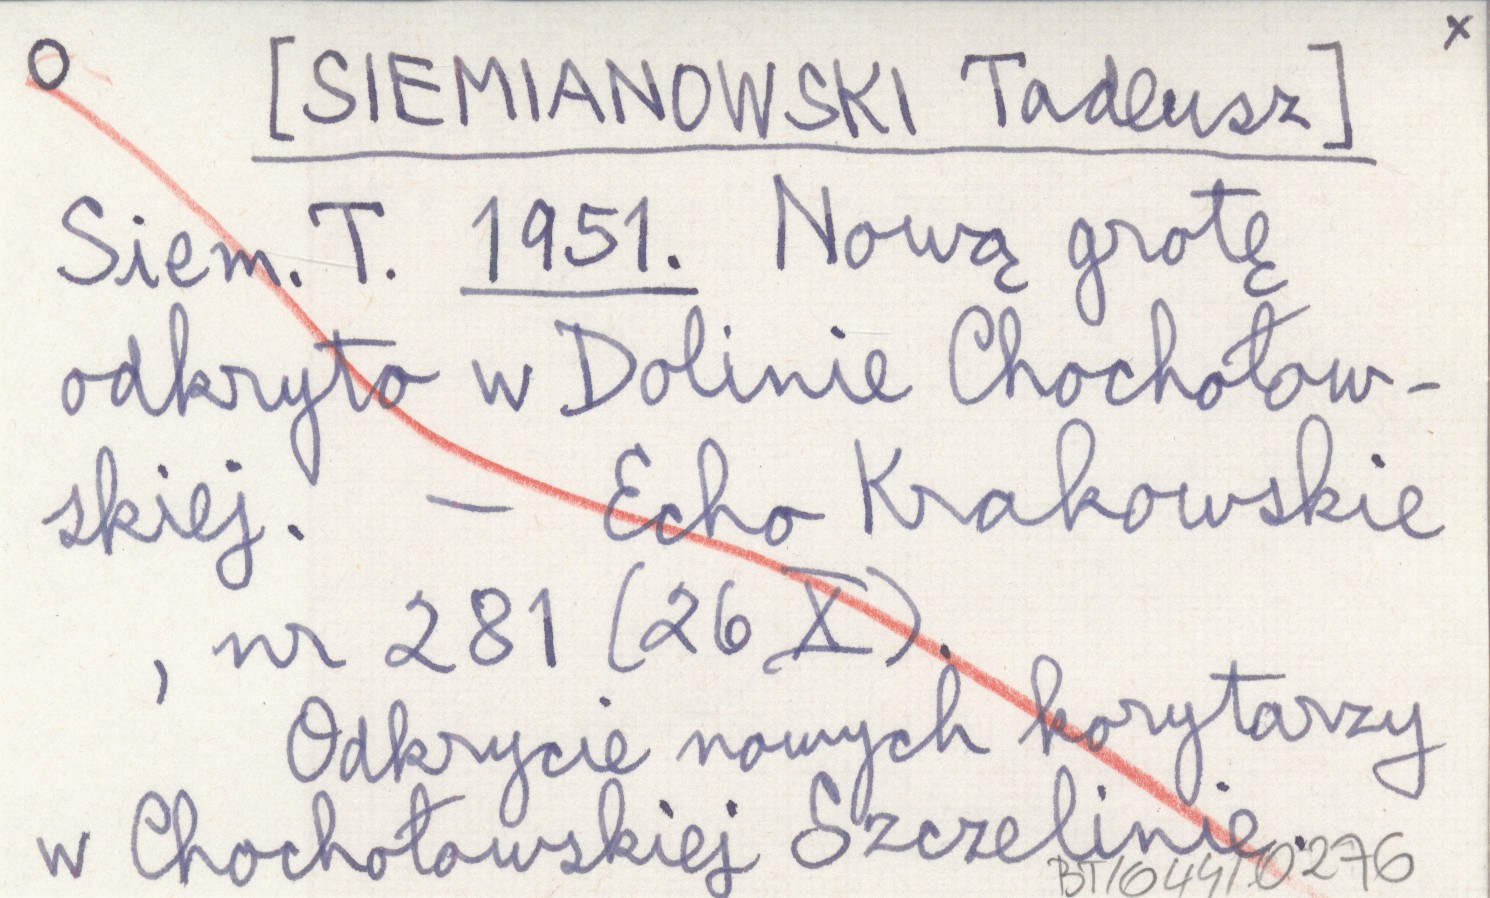 O x
[SIEMIANOWSKI Tadeusz]
Siem. T. 1951. Nową grotę
odkryto w Dolinie Chochołow-
skiej. — Echo Krakowskie
, nr 281 (26 X).
Odkrycie nowych korytarzy
w Chochołowskiej Szczelinie.
BT/644/10276